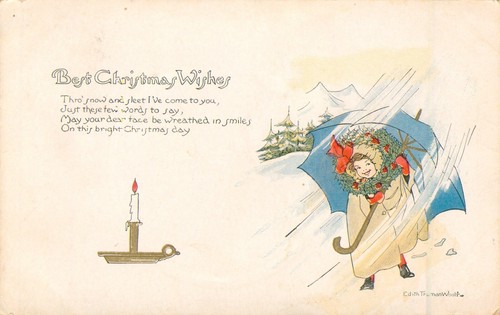 Best Christmas Wishes
Thro' snow and sleet I've come to you,
Just these few words to say,
May your dear face be wreathed in smiles
On this bright Christmas day
Edith